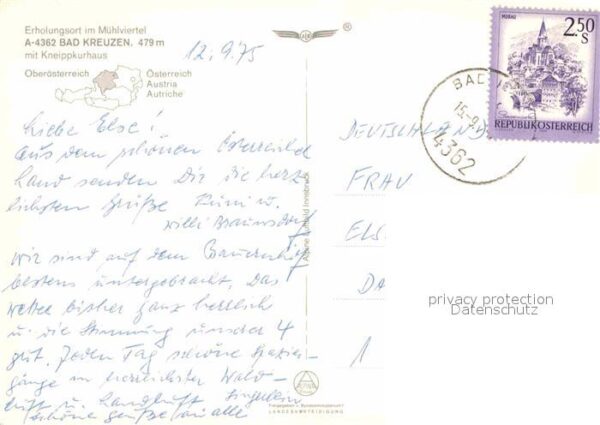 Erholungsort im Mühlviertel
A-4362 BAD KREUZEN, 479 m
mit Kneippkurhaus
Oberösterreich
Österreich
Austria
Autriche
12.9.75
Liebe Else!
Aus dem schönen Österreich
Land senden Dir die herz
lichsten Grüße u.
Willi
Wir sind auf dem Bauernhof
bestens untergebracht. Das
Wetter bisher ganz herrlich
u. die Stimmung unsrer 4
gut. Jeden Tag schöne Spazier-
gänge in herrlichster Wald-
luft u. Landluft
schöne Grüße an alle
Alpine Luftbild Innsbruck
MURAU
2.50
S
REPUBLIK ÖSTERREICH
BAD
15.-9.
4362
DEUTSCHLAND
FRAU
ELS
DA
1
privacy protection
Datenschutz
LANDESVERTEIDIGUNG